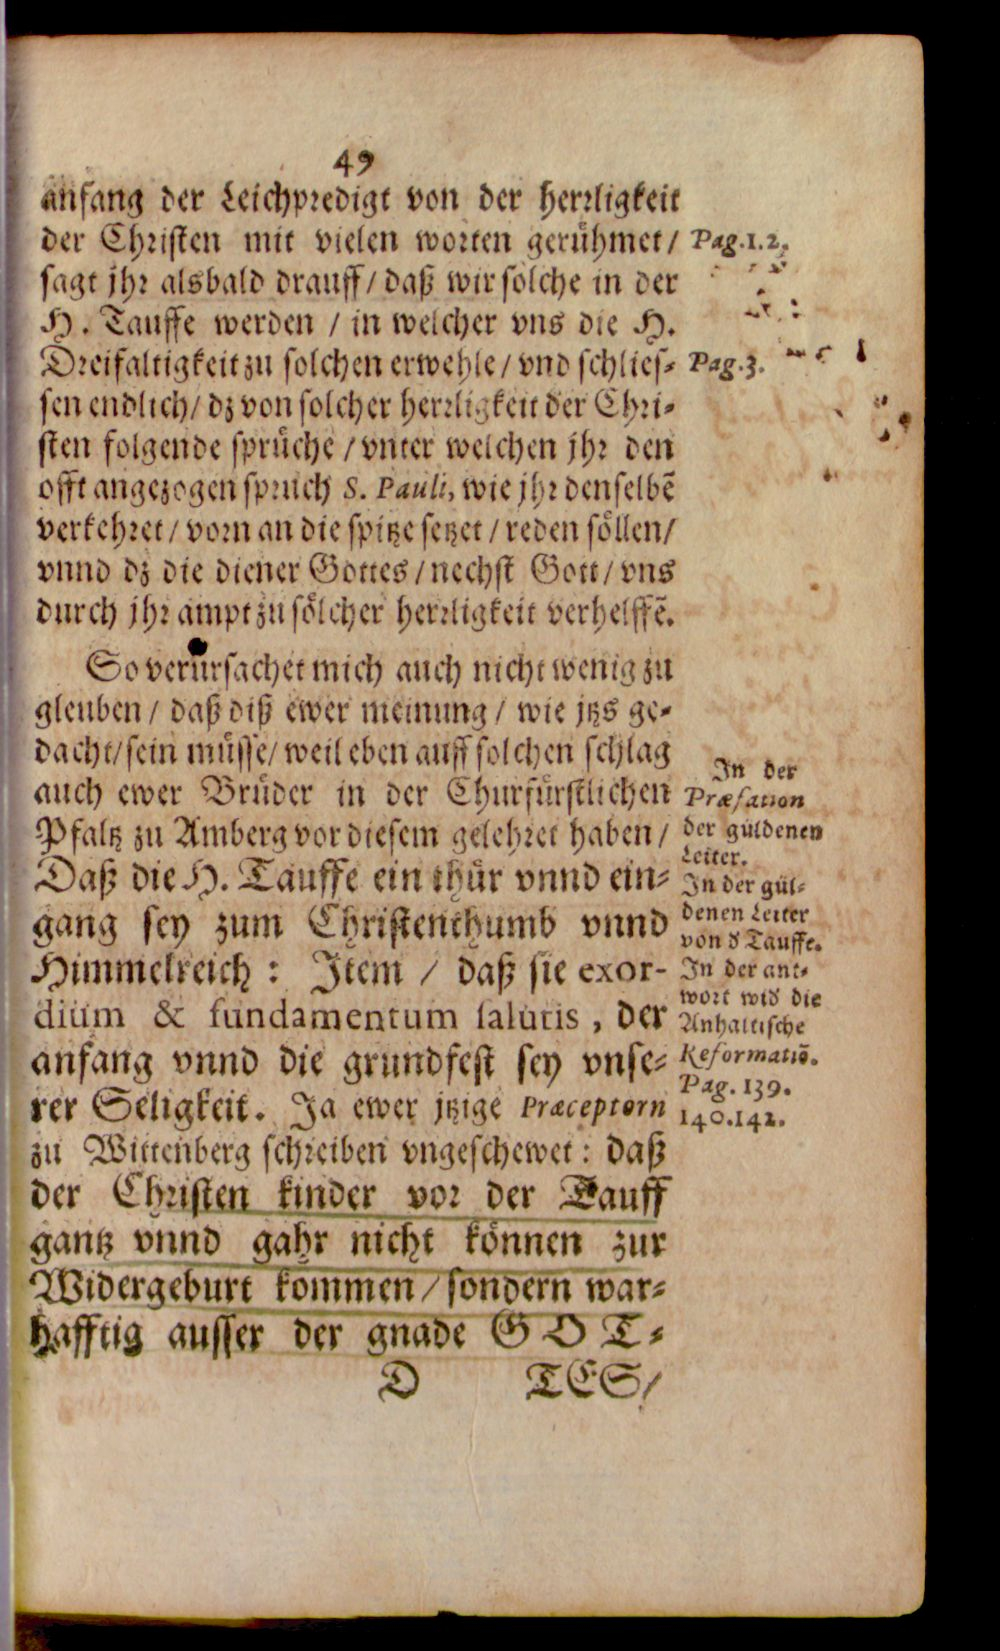 49
anfang der Leichpredigt von der herrligkeit
der Christen mit vielen worten gerühmet/
sagt jhr alsbald drauff/ daß wir solche in der
H. Tauffe werden / in welcher vns die H.
Dreifaltigkeit zu solchen erwehle/ vnd schlies-
sen endlich/ dz von solcher herrligkeit der Chri-
sten folgende sprüche / vnter welchen jhr den
offt angezogen spruch S. Pauli, wie jhr denselbẽ
verkehret/ vorn an die spitze setzet / reden söllen/
vnnd dz die diener Gottes / nechst Gott/ vns
durch jhr ampt zu sölcher herrligkeit verhelffẽ.
So verursachet mich auch nicht wenig zu
gleuben / daß diß ewer meinung / wie jtzs ge-
dacht/ sein müsse/ weil eben auff solchen schlag
auch ewer Brüder in der Churfürstlichen
Pfaltz zu Amberg vor diesem gelehret haben/
Daß die H. Tauffe ein thür vnnd ein-
gang sey zum Christenthumb vnnd
Himmelreich : Item / daß sie exor-
dium & fundamentum salutis, der
anfang vnnd die grundfest sey vnse-
rer Seligkeit. Ja ewer jtzige Præceptorn
zu Wittenberg schreiben vngeschewet: daß
der Christen kinder vor der Tauff
gantz vnnd gahr nicht können zur
Widergeburt kommen / sondern war-
hafftig ausser der gnade GOT-
D TES/
Pag. 1.2.
Pag. 3.
In der
Præfation
der güldenen
Leiter.
In der gül-
denen Leiter
von d Tauffe.
In der ant-
wort wid die
Anhaltische
Reformatiõ.
Pag. 139.
140.142.